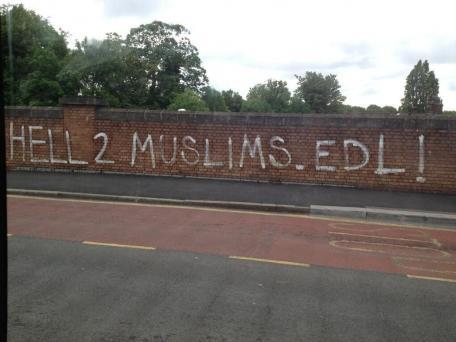 HELL 2 MUSLIMS_EDL!